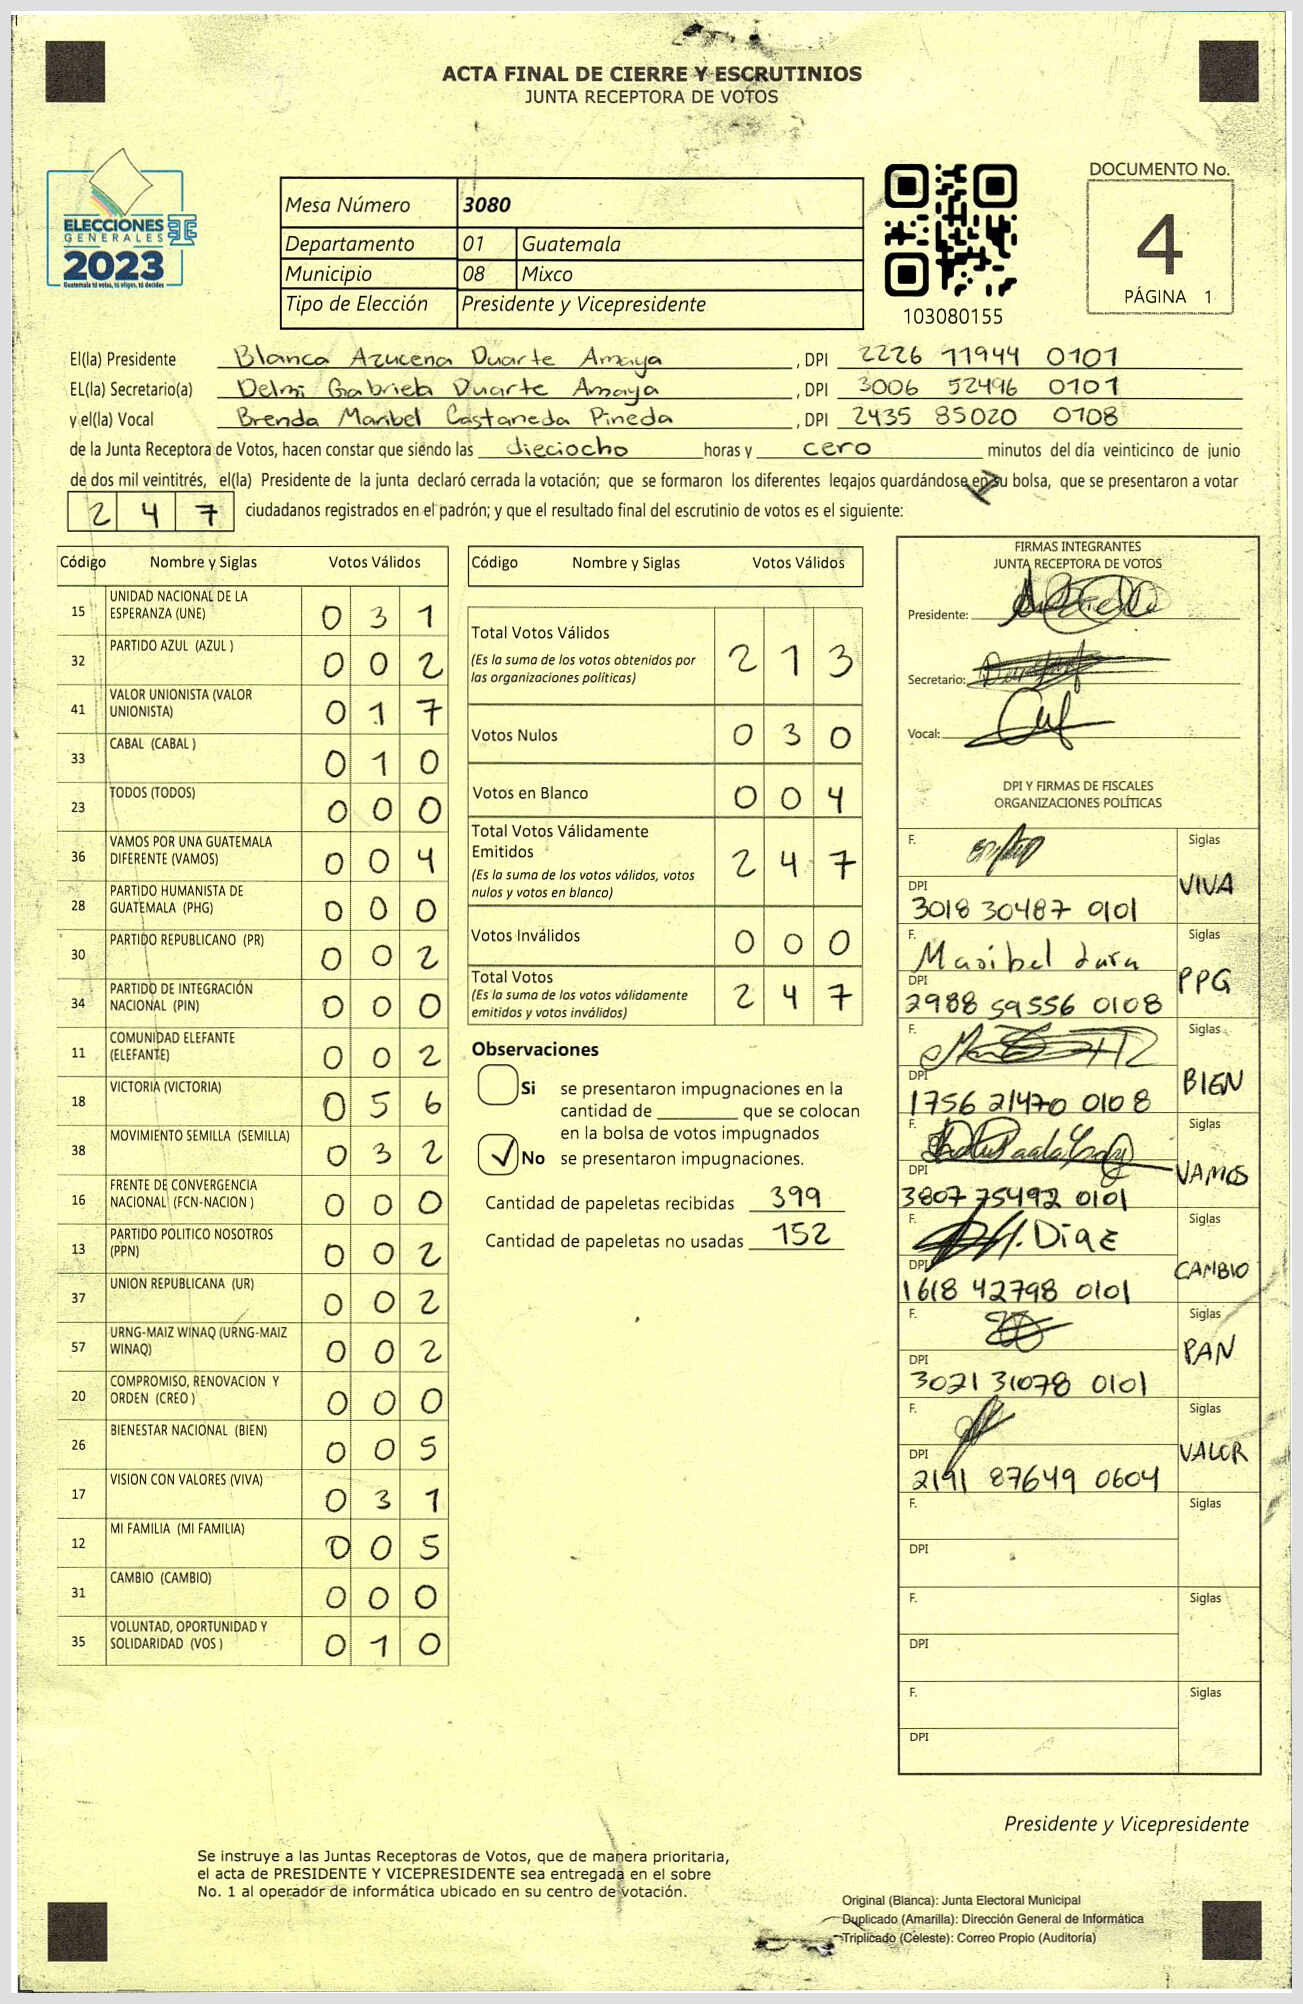 ACTA FINAL DE CIERRE Y ESCRUTINIOS
JUNTA RECEPTORA DE VOTOS
ELECCIONES
GENERALES
2023
Guatemala tú votas, tú eliges, tú decides
Mesa Número 3080
Departamento 01 Guatemala
Municipio 08 Mixco
Tipo de Elección Presidente y Vicepresidente
103080155
DOCUMENTO No.
4
PÁGINA 1
El(la) Presidente Blanca Azucena Duarte Amaya , DPI 2226 11944 0101
EL(la) Secretario(a) Delmi Gabriela Duarte Amaya , DPI 3006 52496 0101
y el(la) Vocal Brenda Maribel Castaneda Pineda , DPI 2435 85020 0108
de la Junta Receptora de Votos, hacen constar que siendo las dieciocho horas y cero minutos del día veinticinco de junio
de dos mil veintitrés, el(la) Presidente de la junta declaró cerrada la votación; que se formaron los diferentes legajos guardándose en su bolsa, que se presentaron a votar
2 4 7 ciudadanos registrados en el padrón; y que el resultado final del escrutinio de votos es el siguiente:
Código Nombre y Siglas Votos Válidos
15 UNIDAD NACIONAL DE LA
ESPERANZA (UNE) 0 3 1
32 PARTIDO AZUL (AZUL ) 0 0 2
41 VALOR UNIONISTA (VALOR
UNIONISTA) 0 1 7
33 CABAL (CABAL ) 0 1 0
23 TODOS (TODOS) 0 0 0
36 VAMOS POR UNA GUATEMALA
DIFERENTE (VAMOS) 0 0 4
28 PARTIDO HUMANISTA DE
GUATEMALA (PHG) 0 0 0
30 PARTIDO REPUBLICANO (PR) 0 0 2
34 PARTIDO DE INTEGRACIÓN
NACIONAL (PIN) 0 0 0
11 COMUNIDAD ELEFANTE
(ELEFANTE) 0 0 2
18 VICTORIA (VICTORIA) 0 5 6
38 MOVIMIENTO SEMILLA (SEMILLA) 0 3 2
16 FRENTE DE CONVERGENCIA
NACIONAL (FCN-NACION ) 0 0 0
13 PARTIDO POLITICO NOSOTROS
(PPN) 0 0 2
37 UNION REPUBLICANA (UR) 0 0 2
57 URNG-MAIZ WINAQ (URNG-MAIZ
WINAQ) 0 0 2
20 COMPROMISO, RENOVACION Y
ORDEN (CREO ) 0 0 0
26 BIENESTAR NACIONAL (BIEN) 0 0 5
17 VISION CON VALORES (VIVA) 0 3 1
12 MI FAMILIA (MI FAMILIA) 0 0 5
31 CAMBIO (CAMBIO) 0 0 0
35 VOLUNTAD, OPORTUNIDAD Y
SOLIDARIDAD (VOS ) 0 1 0
Código Nombre y Siglas Votos Válidos
Total Votos Válidos 2 1 3
(Es la suma de los votos obtenidos por
las organizaciones políticas)
Votos Nulos 0 3 0
Votos en Blanco 0 0 4
Total Votos Válidamente
Emitidos 2 4 7
(Es la suma de los votos válidos, votos
nulos y votos en blanco)
Votos Inválidos 0 0 0
Total Votos 2 4 7
(Es la suma de los votos válidamente
emitidos y votos inválidos)
Observaciones
Si se presentaron impugnaciones en la
cantidad de ________ que se colocan
en la bolsa de votos impugnados
No se presentaron impugnaciones.
Cantidad de papeletas recibidas 399
Cantidad de papeletas no usadas 152
FIRMAS INTEGRANTES
JUNTA RECEPTORA DE VOTOS
Presidente:
Secretario:
Vocal:
DPI Y FIRMAS DE FISCALES
ORGANIZACIONES POLÍTICAS
F. Siglas
DPI VIVA
3018 30487 0101
F. Maribel Lara Siglas
DPI PPG
2988 59556 0108
F. Siglas
DPI BIEN
1756 21470 0108
F. Siglas
DPI VAMOS
3807 75492 0101
F. Diaz Siglas
DPI CAMBIO
1618 42798 0101
F. Siglas
DPI PAN
3021 31078 0101
F. Siglas
DPI VALOR
2191 87649 0604
F. Siglas
DPI
F. Siglas
DPI
F. Siglas
DPI
Presidente y Vicepresidente
Se instruye a las Juntas Receptoras de Votos, que de manera prioritaria,
el acta de PRESIDENTE Y VICEPRESIDENTE sea entregada en el sobre
No. 1 al operador de informática ubicado en su centro de votación.
Original (Blanca): Junta Electoral Municipal
Duplicado (Amarilla): Dirección General de Informática
Triplicado (Celeste): Correo Propio (Auditoría)